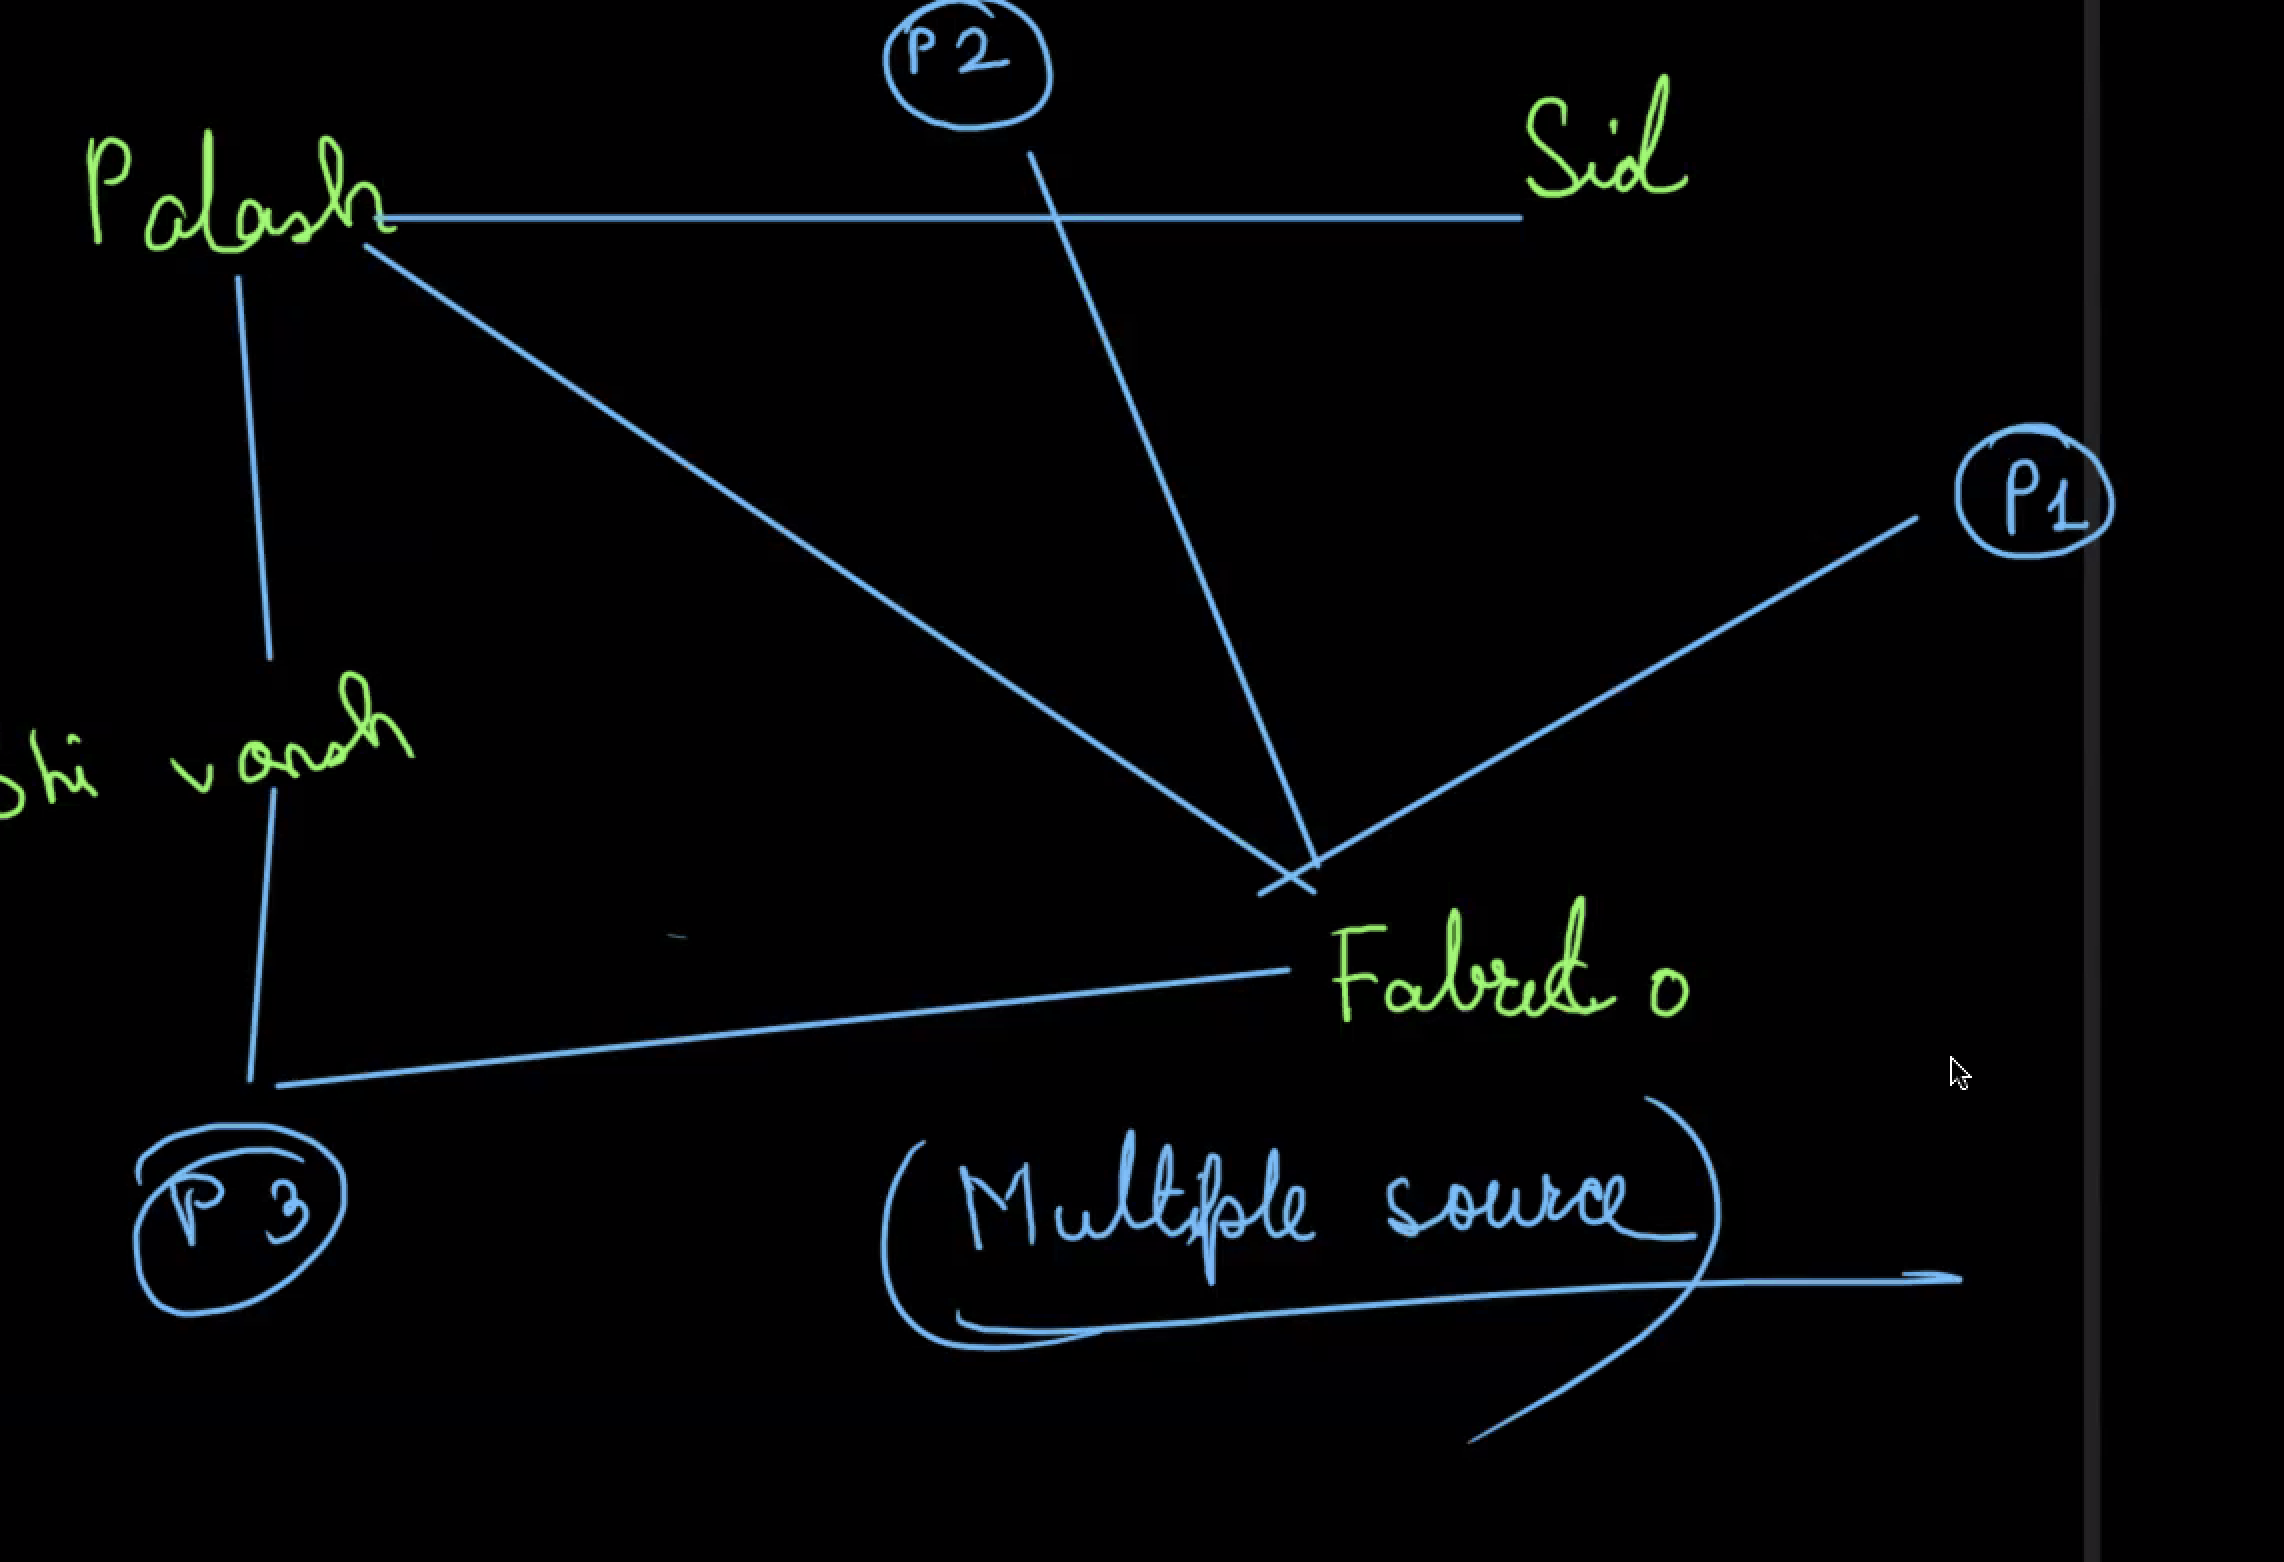 P2
Sid
Palash
P1
Shi vansh
Fabret o
P 3
(Multiple source)